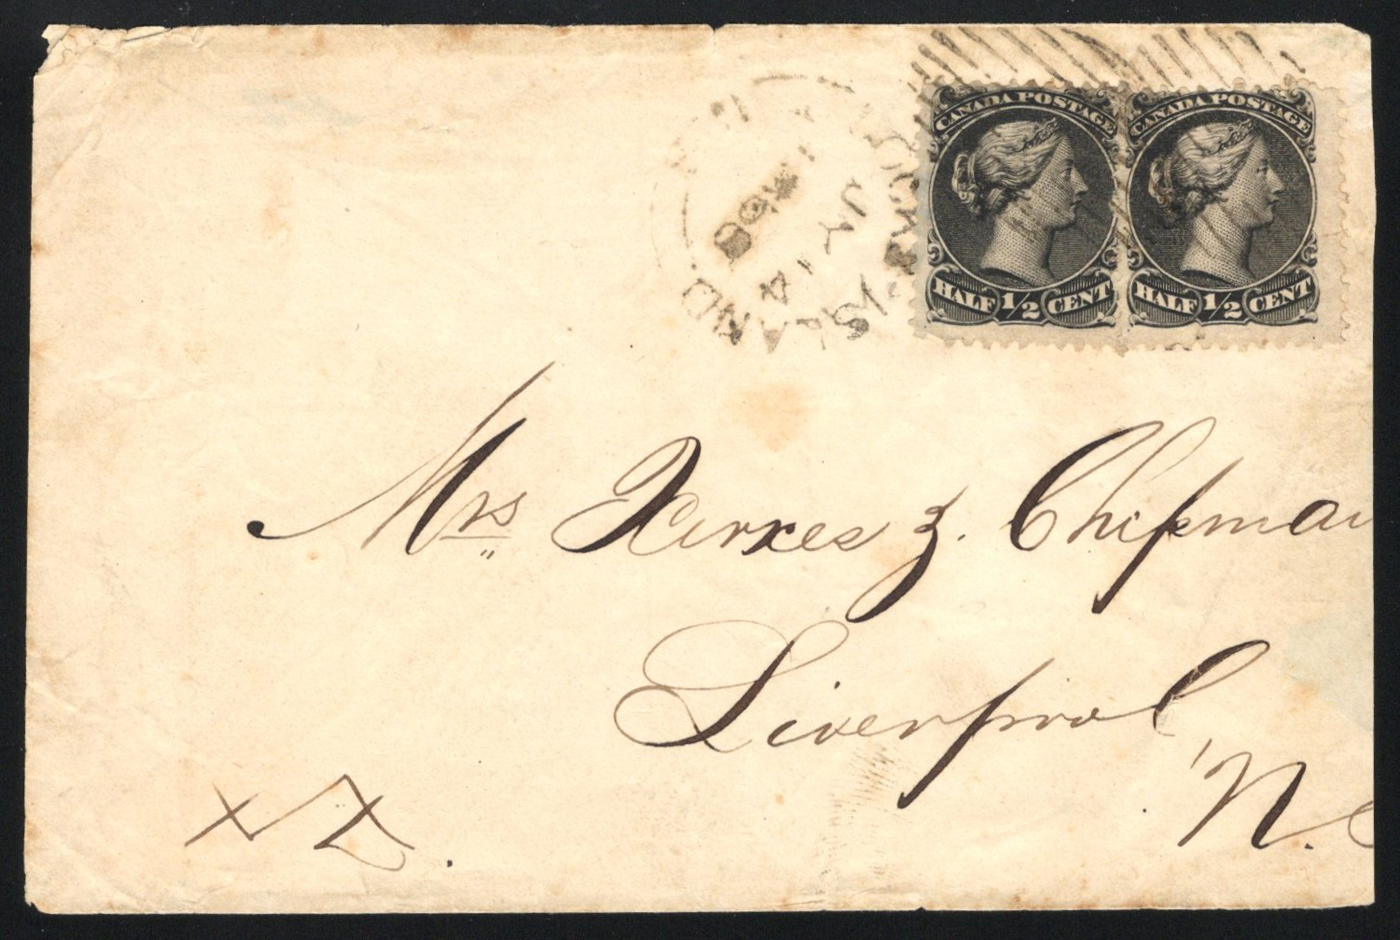 CANADA POSTAGE
HALF 1/2 CENT
CANADA POSTAGE
HALF 1/2 CENT
ISLAND
JY 14
Mrs Xerxes Z. Chipma
Liverpool
N.